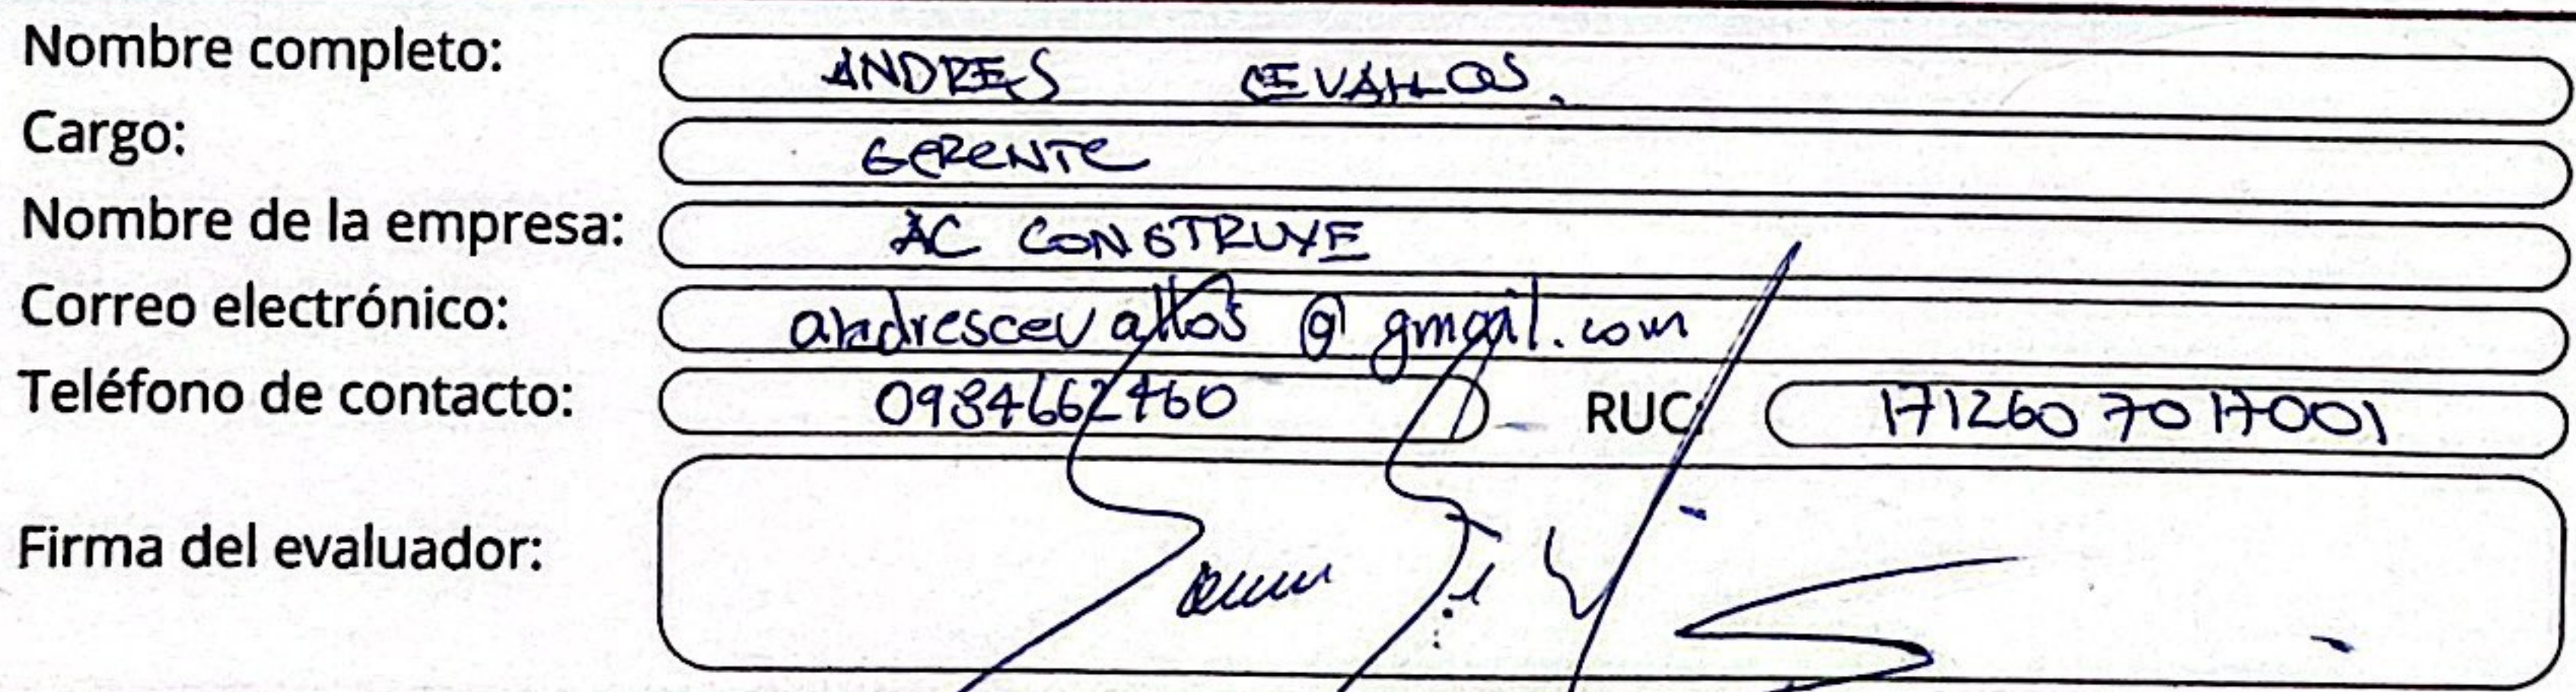 Nombre completo: ANDRES CEVALLOS.
Cargo: GERENTE
Nombre de la empresa: AC CONSTRUYE
Correo electrónico: andrescevallos@gmail.com
Teléfono de contacto: 0984662460 RUC: 1712607017001
Firma del evaluador: